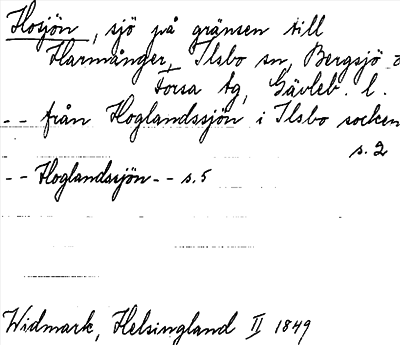 Hosjön, sjö på gränsen till
Harmånger, Ilsbo sn, Bergsjö o
Forsa tg, Gävleb. l.
-- från Hoglandssjön i Ilsbo socken
s. 2
-- Hoglandssjön -- s. 5
Widmark, Helsingland II 1849